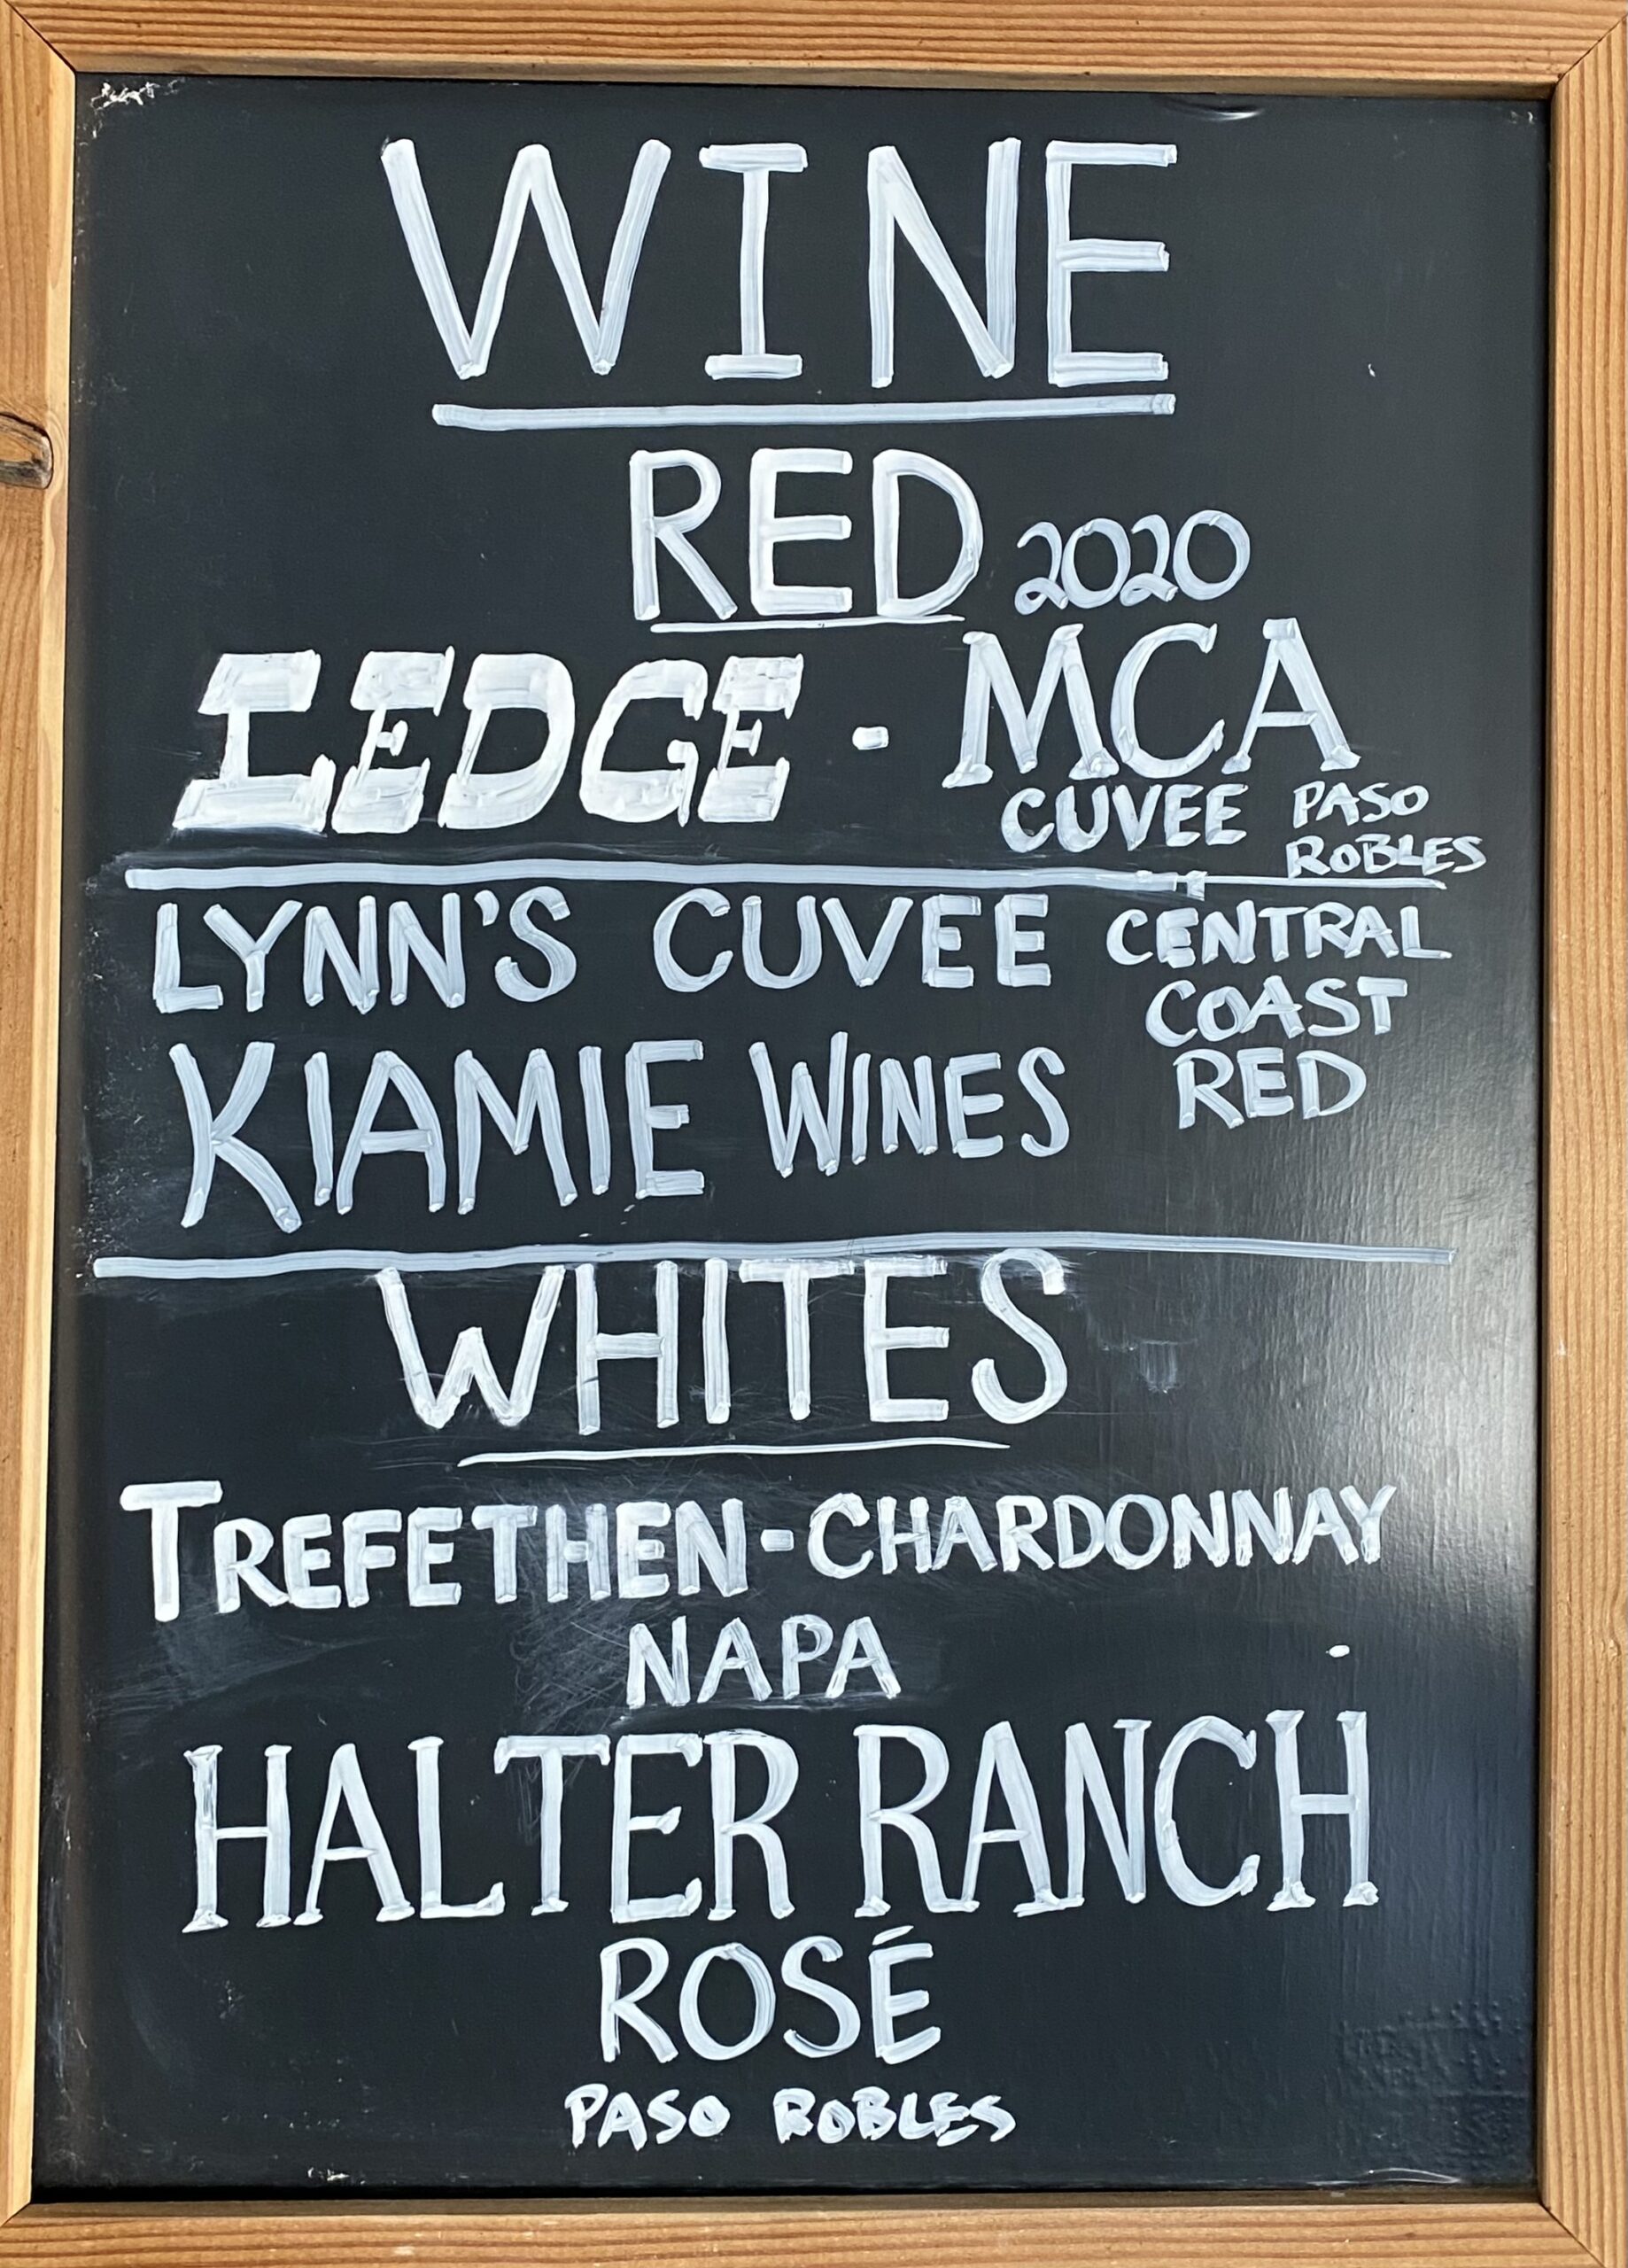 WINE
RED
2020
LEDGE - MCA
CUVEE PASO
ROBLES
LYNN'S CUVEE CENTRAL
COAST
KIAMIE WINES RED
WHITES
TREFETHEN - CHARDONNAY
NAPA
HALTER RANCH
ROSÉ
PASO ROBLES